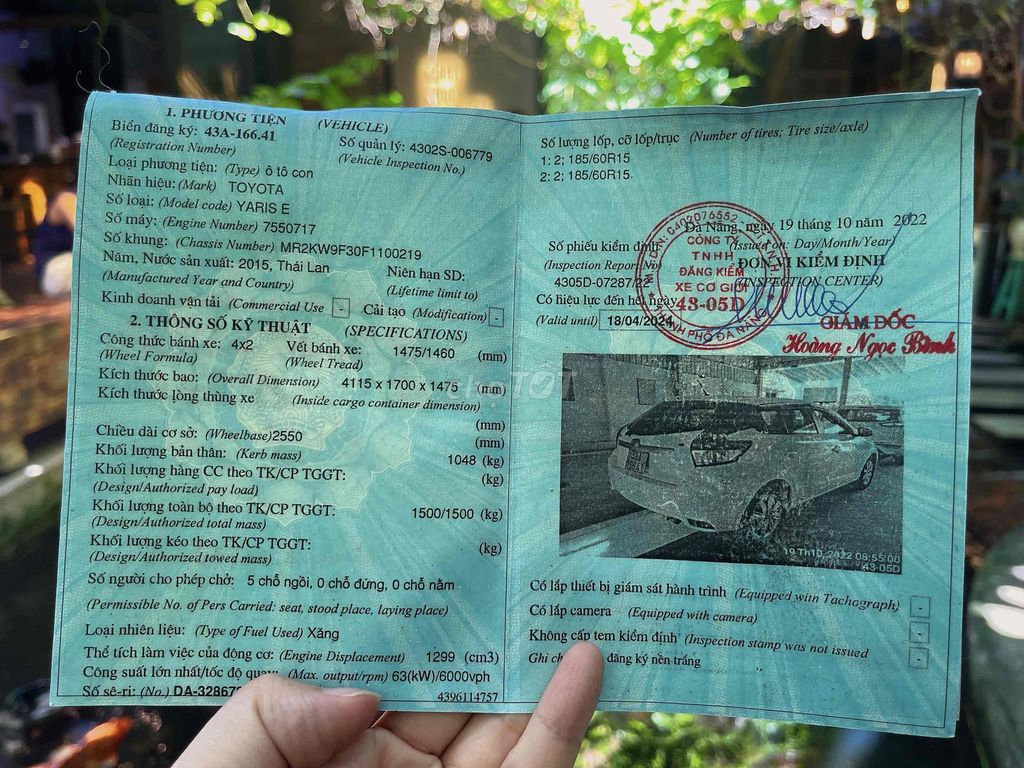 1. PHƯƠNG TIỆN (VEHICLE)
Biển đăng ký: 43A-166.41 Số quản lý: 4302S-006779
(Registration Number) (Vehicle Inspection No.)
Loại phương tiện: (Type) ô tô con
Nhãn hiệu: (Mark) TOYOTA
Số loại: (Model code) YARIS E
Số máy: (Engine Number) 7550717
Số khung: (Chassis Number) MR2KW9F30F1100219
Năm, Nước sản xuất: 2015, Thái Lan Niên hạn SD:
(Manufactured Year and Country) (Lifetime limit to)
Kinh doanh vận tải (Commercial Use - Cải tạo (Modification) -
2. THÔNG SỐ KỸ THUẬT (SPECIFICATIONS)
Công thức bánh xe: 4x2 Vết bánh xe: 1475/1460 (mm)
(Wheel Formula) (Wheel Tread)
Kích thước bao: (Overall Dimension) 4115 x 1700 x 1475 (mm)
Kích thước lòng thùng xe (Inside cargo container dimension)
(mm)
Chiều dài cơ sở: (Wheelbase) 2550 (mm)
Khối lượng bản thân: (Kerb mass) 1048 (kg)
Khối lượng hàng CC theo TK/CP TGGT: (kg)
(Design/Authorized pay load)
Khối lượng toàn bộ theo TK/CP TGGT: 1500/1500 (kg)
(Design/Authorized total mass)
Khối lượng kéo theo TK/CP TGGT: (kg)
(Design/Authorized towed mass)
Số người cho phép chở: 5 chỗ ngồi, 0 chỗ đứng, 0 chỗ nằm
(Permissible No. of Pers Carried: seat, stood place, laying place)
Loại nhiên liệu: (Type of Fuel Used) Xăng
Thể tích làm việc của động cơ: (Engine Displacement) 1299 (cm3)
Công suất lớn nhất/tốc độ quay: (Max. output/rpm) 63(kW)/6000vph
Số sê-ri: (No.) DA-328672 4396114757
Số lượng lốp, cỡ lốp/trục (Number of tires; Tire size/axle)
1: 2; 185/60R15
2: 2; 185/60R15
Đà Nẵng, ngày 19 tháng 10 năm 2022
Số phiếu kiểm định (Issued on: Day/Month/Year)
(Inspection Report No) ĐƠN VỊ KIỂM ĐỊNH
4305D-07287/22 (INSPECTION CENTER)
Có hiệu lực đến hết ngày
(Valid until) 18/04/2024
0402076552
CÔNG TY
TNHH
ĐĂNG KIỂM
XE CƠ GIỚI
43-05D
THÀNH PHỐ ĐÀ NẴNG
GIÁM ĐỐC
Hoàng Ngọc Bình
TỐT
19 Th10, 2022 08:55:00
43-05D
Có lắp thiết bị giám sát hành trình (Equipped with Tachograph) -
Có lắp camera (Equipped with camera) -
Không cấp tem kiểm định (Inspection stamp was not issued -
Ghi ch đăng ký nền trắng